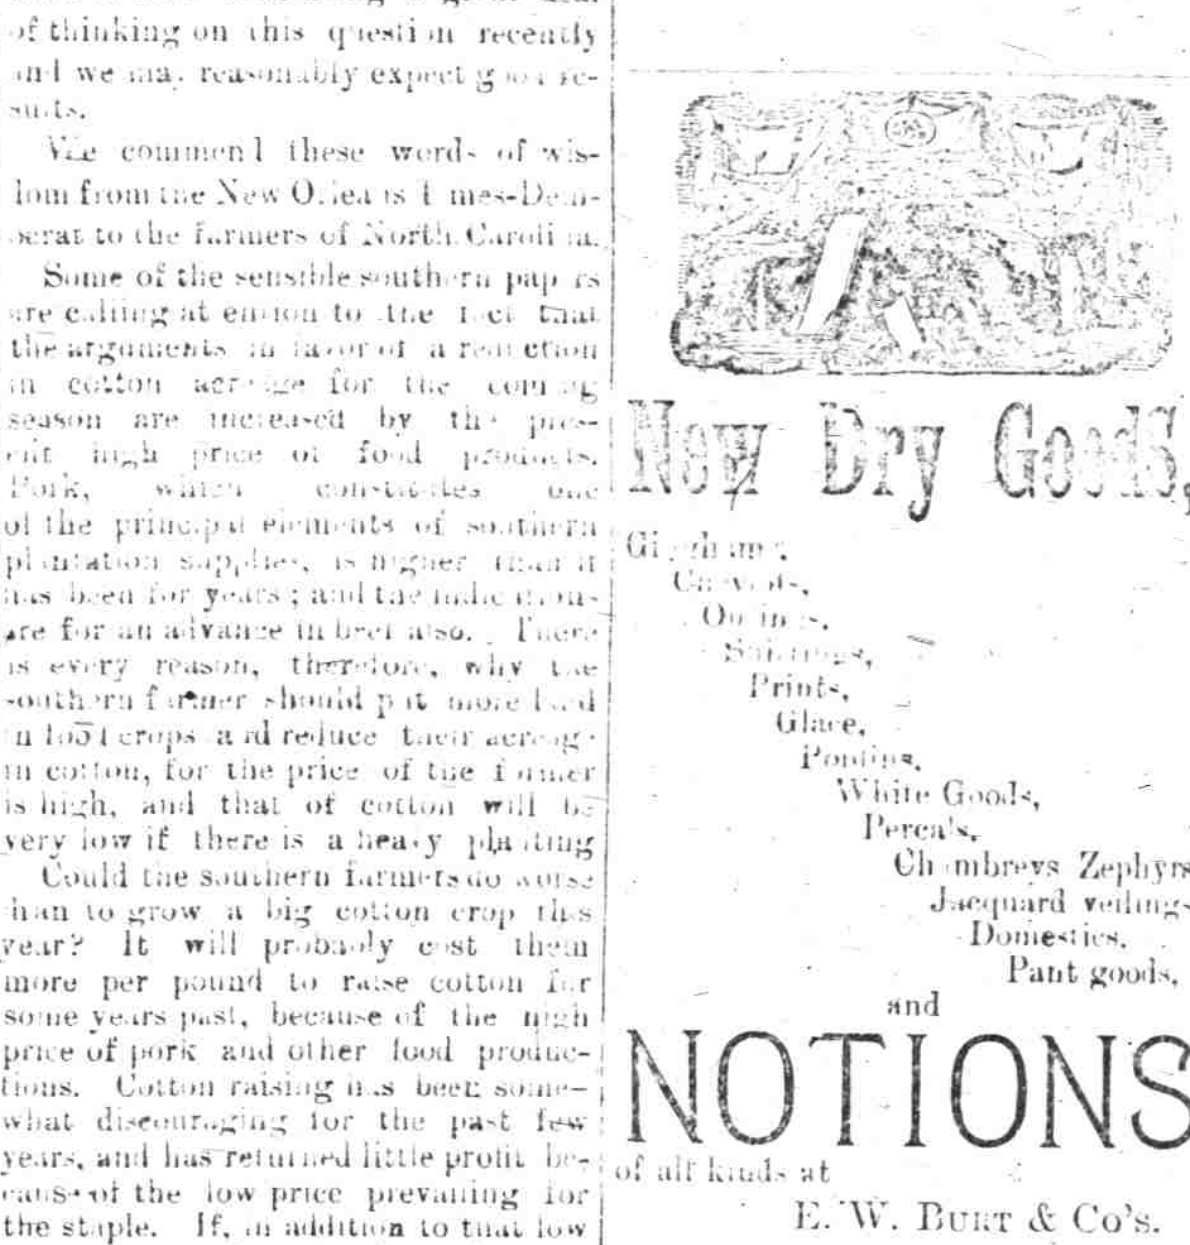 of thinking on this question recently
and we may reasonably expect good re-
sults.
We commend these words of wis-
dom from the New Orleans Times-Dem-
ocrat to the farmers of North Carolina.
Some of the sensible southern papers
are calling attention to the fact that
the arguments in favor of a reduction
in cotton acreage for the coming
season are increased by the pres-
ent high price of food products.
Pork, which constitutes one
of the principal elements of southern
plantation supplies, is higher than it
has been for years; and the indications
are for an advance in beef also. There
is every reason, therefore, why the
southern farmer should put more land
in food crops and reduce their acreage
in cotton, for the price of the former
is high, and that of cotton will be
very low if there is a heavy planting
Could the southern farmers do worse
than to grow a big cotton crop this
year? It will probably cost them
more per pound to raise cotton for
some years past, because of the high
price of pork and other food produc-
tions. Cotton raising has been some-
what discouraging for the past few
years, and has returned little profit be-
cause of the low price prevailing for
the staple. If, in addition to that low
New Dry Goods,
Ginghams,
Cheviots,
Outings,
Suitings,
Prints,
Glace,
White Goods,
Percals,
Chambreys Zephyrs
Jacquard veilings
Domestics,
Pant goods,
and
NOTIONS
of all kinds at
E. W. BURT & Co's.